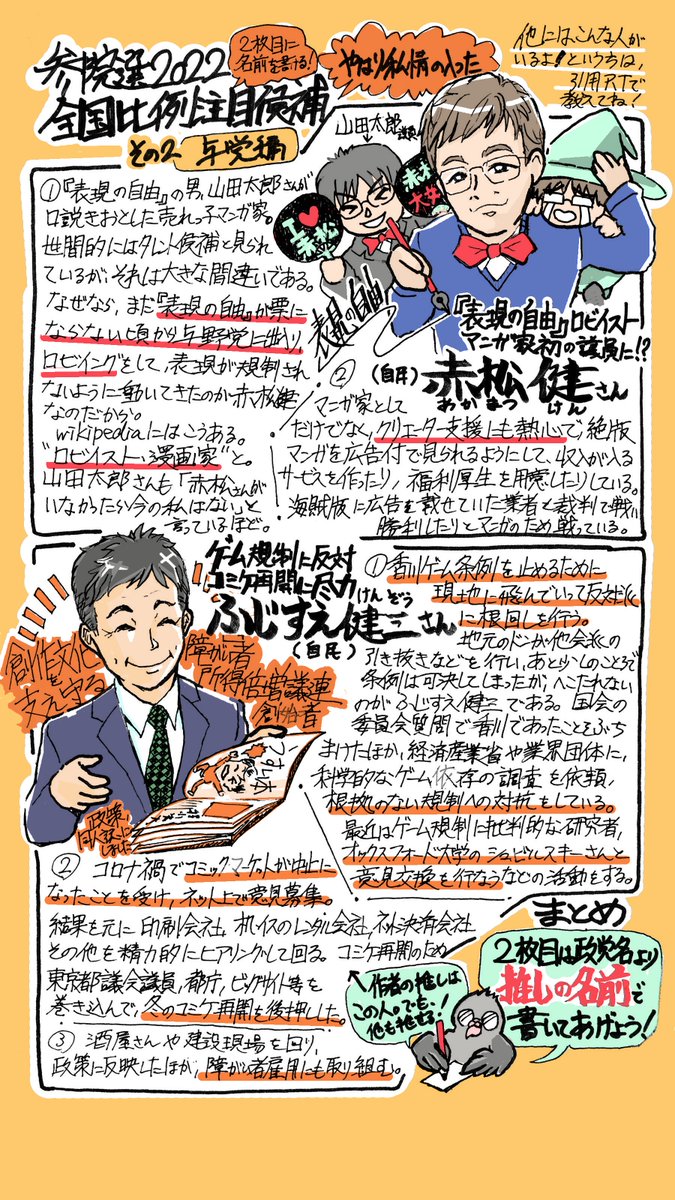 参院選2022
全国比例注目候補
その2 与党編
2枚目に
名前を書ける!
やはり私情の入った
他にはこんな人が
いるよ!というちは、
引用RTで
教えてね!
山田太郎
議員
I♥
赤松
大好
表現の自由
①『表現の自由』の男、山田太郎さんが
口説きおとした売れっ子マンガ家。
世間的にはタレント候補と見られ
ているが、それは大きな間違いである。
なぜなら、まだ『表現の自由』が票に
ならない頃から与野党に出入り
ロビイングをして、表現が規制され
ないように動いてきたのが赤松健
なのだから。
wikipediaにはこうある。
"ロビイスト・漫画家"と。
山田太郎さんも「赤松さんが
いなかったら今の私はない」と
言っているほど。
『表現の自由』ロビイスト
マンガ家初の議員に!?
(自民)赤松健さん
あかまつ けん
② マンガ家として
だけでなく、クリエーター支援にも熱心で、絶版
マンガを広告付で見られるようにして、収入が入る
サービスを作ったり、福利厚生を用意したりしている。
海賊版に広告を載せていた業者と裁判で戦い
勝利したりとマンガのため戦っている。
ゲーム規制に反対
コミケ再開に尽力
けんぞう
ふじすえ健三さん
(自民)
創作文化を
支え守る
障がい者
所得倍増議連
創始者
政策、
同人誌に
しました
①香川ゲーム条例を止めるために
現地に飛んでいって反対派
に根回しを行う。
地元のドンが他会派の
引き抜きなどを行い、あと少しのところで
条例は可決してしまったが、へこたれない
のがふじすえ健三である。国会の
委員会質問で香川であったことをぶち
まけたほか、経済産業省や業界団体に、
科学的なゲーム依存の調査を依頼、
根拠のない規制への対抗をしている。
最近はゲーム規制に批判的な研究者、
オックスフォード大学のシュビルスキーさんと
意見交換を行なうなどの活動をする。
② コロナ禍でコミックマーケットが中止に
なったことを受け、ネット上で意見募集。
結果を元に印刷会社、机イスのレンタル会社、ネット決済会社
その他を精力的にヒアリングして回る。コミケ再開のため
東京都議会議員、都庁、ビッグサイト等を
巻き込んで、冬のコミケ再開を後押しした。
③ 酒屋さんや建設現場を回り、
政策に反映したほか、障がい者雇用にも取り組む。
まとめ
作者の推しは
この人。でも、
他も推せる!
2枚目は政党名より
推しの名前で
書いてあげよう!